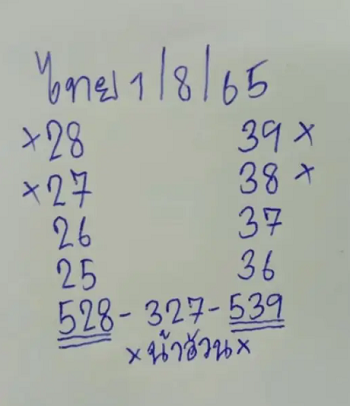 ไทย 1/8/65
×28 39×
×27 38×
26 37
25 36
528-327-539
×น้าอ้วน×